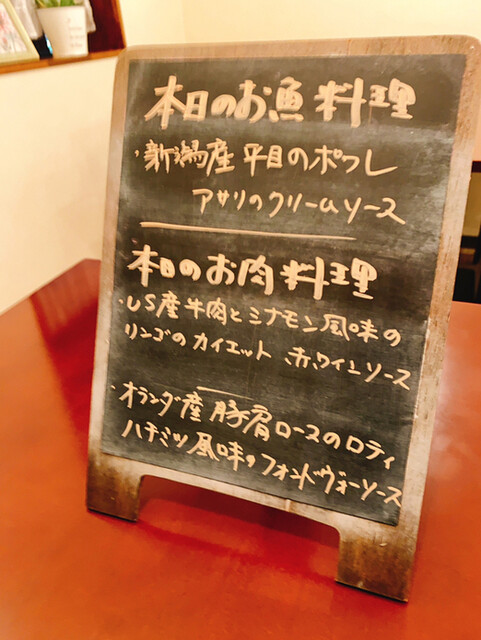 本日のお魚料理
・新潟産平目のポワレ
アサリのクリームソース
本日のお肉料理
・US産牛肉とシナモン風味の
リンゴのカイエット 赤ワインソース
・オランダ産豚肩ロースのロティ
ハチミツ風味のフォンドヴォーソース